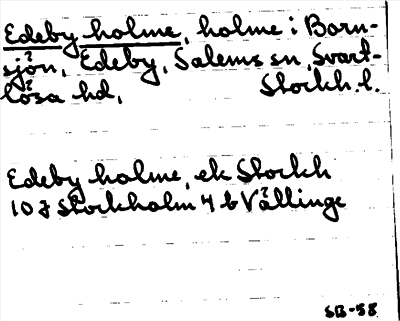 Edeby holme, holme i Born-
sjön, Edeby, Salems sn, Svart-
lösa hd, Stockh. l.
Edeby holme, ek Stockh
10 J Stockholm 4 b Vällinge
SB-58